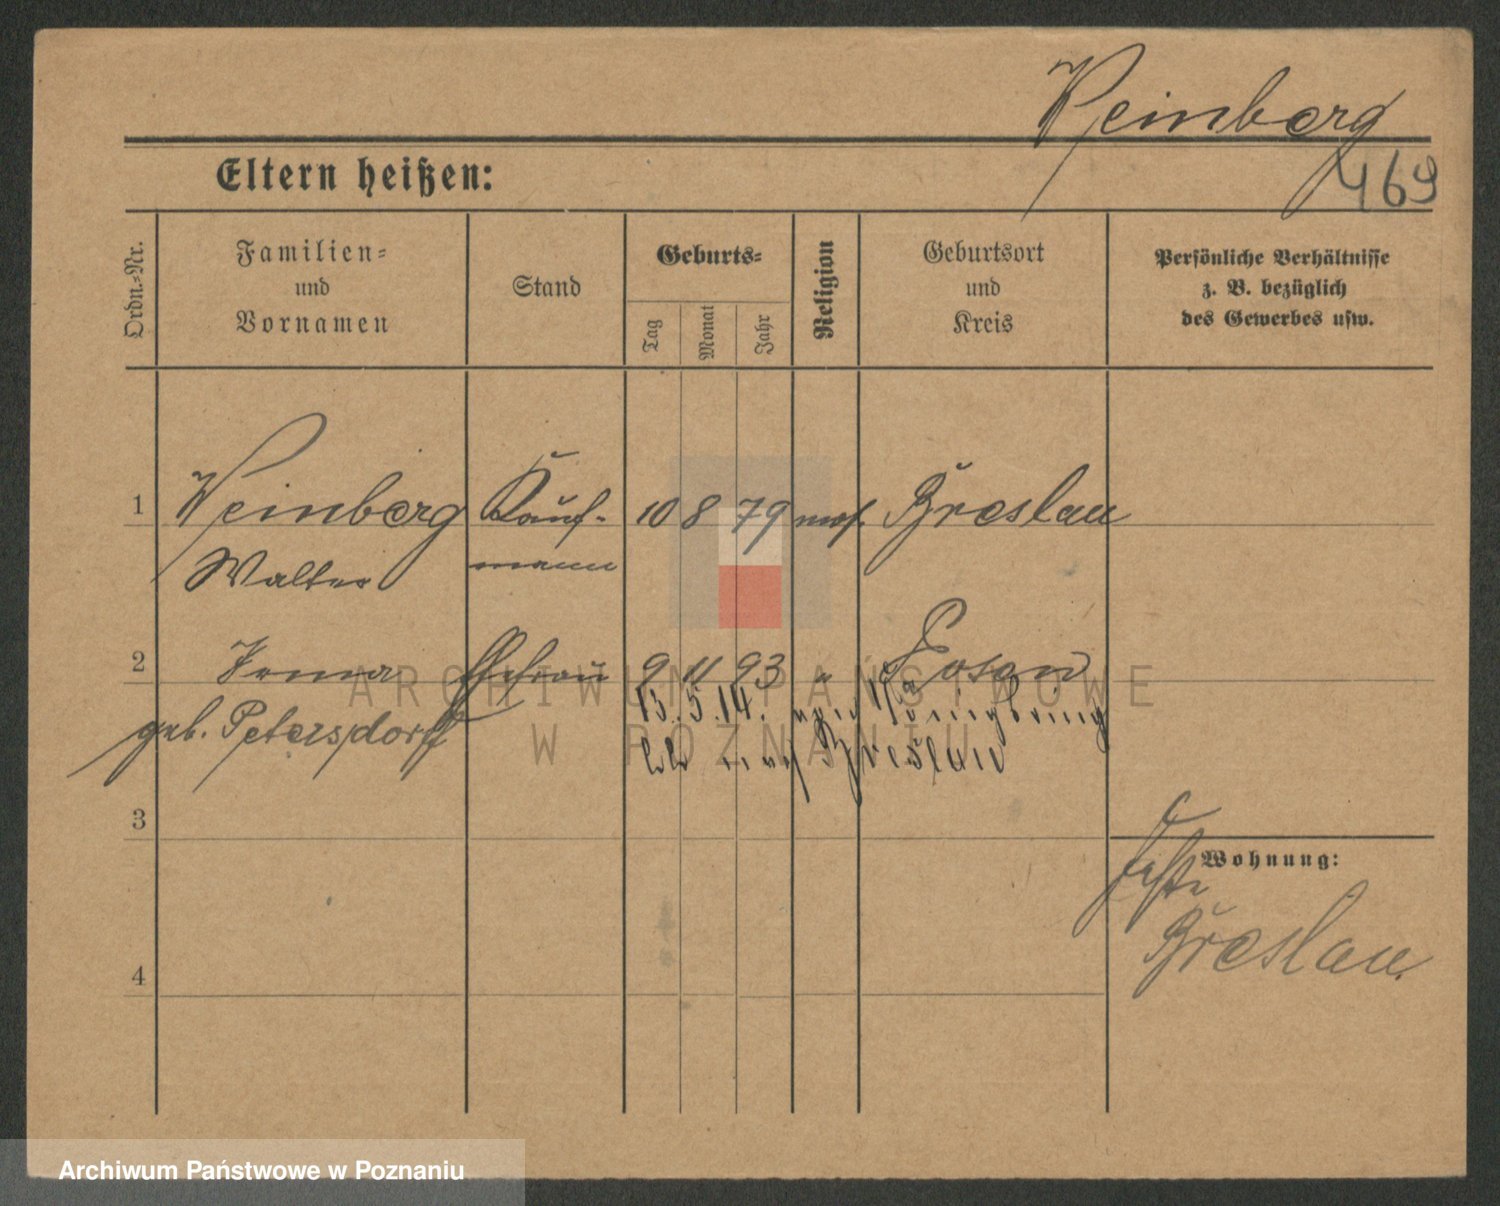 Weinberg
469
Eltern heißen:
Ordn.=Nr.
Familien=
und
Vornamen
Stand
Geburts=
Tag
Monat
Jahr
Religion
Geburtsort
und
Kreis
Persönliche Verhältnisse
z. B. bezüglich
des Gewerbes usw.
1 Weinberg Kauf- 10 8 79 mos. Breslau
Walter mann
2 Irma Ehefrau 9 11 93 " Posen
geb. Petersdorff
13. 5. 14.
nach Breslau
3
Wohnung:
Breslau.
4
ARCHIWUM PAŃSTWOWE
W POZNANIU
Archiwum Państwowe w Poznaniu